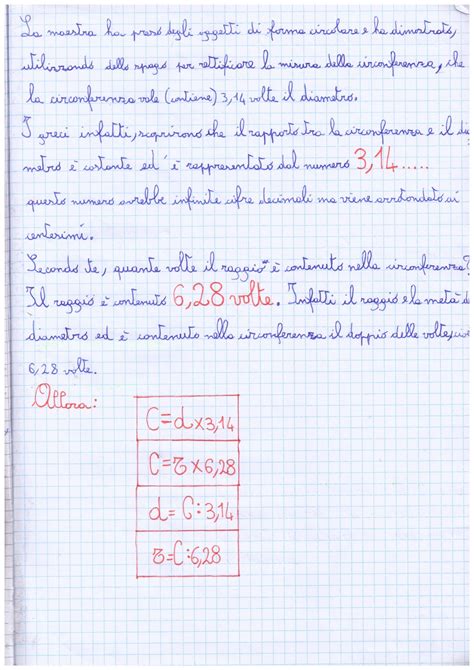 La maestra ha preso degli oggetti di forma circolare e ha dimostrato,
utilizzando dello spago per rettificare la misura della circonferenza, che
la circonferenza vale (contiene) 3,14 volte il diametro.
I greci infatti, scoprirono che il rapporto tra la circonferenza e il dia
metro è costante ed è rappresentato dal numero 3,14.....
questo numero avrebbe infinite cifre decimali ma viene arrotondato ai
centesimi.
Secondo te, quante volte il raggio è contenuto nella circonferenza?
Il raggio è contenuto 6,28 volte. Infatti il raggio e la metà d
diametro ed è contenuto nella circonferenza il doppio delle volte, cio
6,28 volte.
Allora:
C=d×3,14
C=r×6,28
d=C:3,14
r=C:6,28